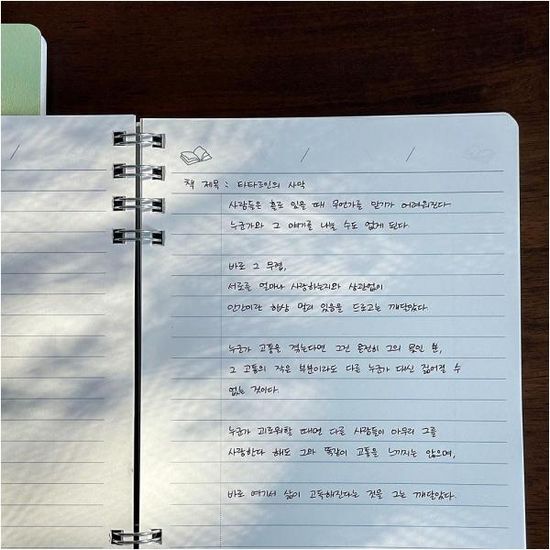 책 제목 : 타타르인의 사막
사람들은 홀로 있을 때 무언가를 믿기가 어려워진다
누군가와 그 얘기를 나눌 수도 없게 된다.
바로 그 무렵,
서로를 얼마나 사랑하는지와 상관없이
인간이란 항상 멀리 있음을 드로고는 깨달았다.
누군가 고통을 겪는다면 그건 온전히 그의 몫인 뿐,
그 고통의 작은 부분이라도 다른 누군가 대신 짊어질 수
없는 것이다.
누군가 괴로워할 때면 다른 사람들이 아무리 그를
사랑한다 해도 그와 똑같이 고통을 느끼지는 않으며,
바로 여기서 삶이 고독해진다는 것을 그는 깨달았다.